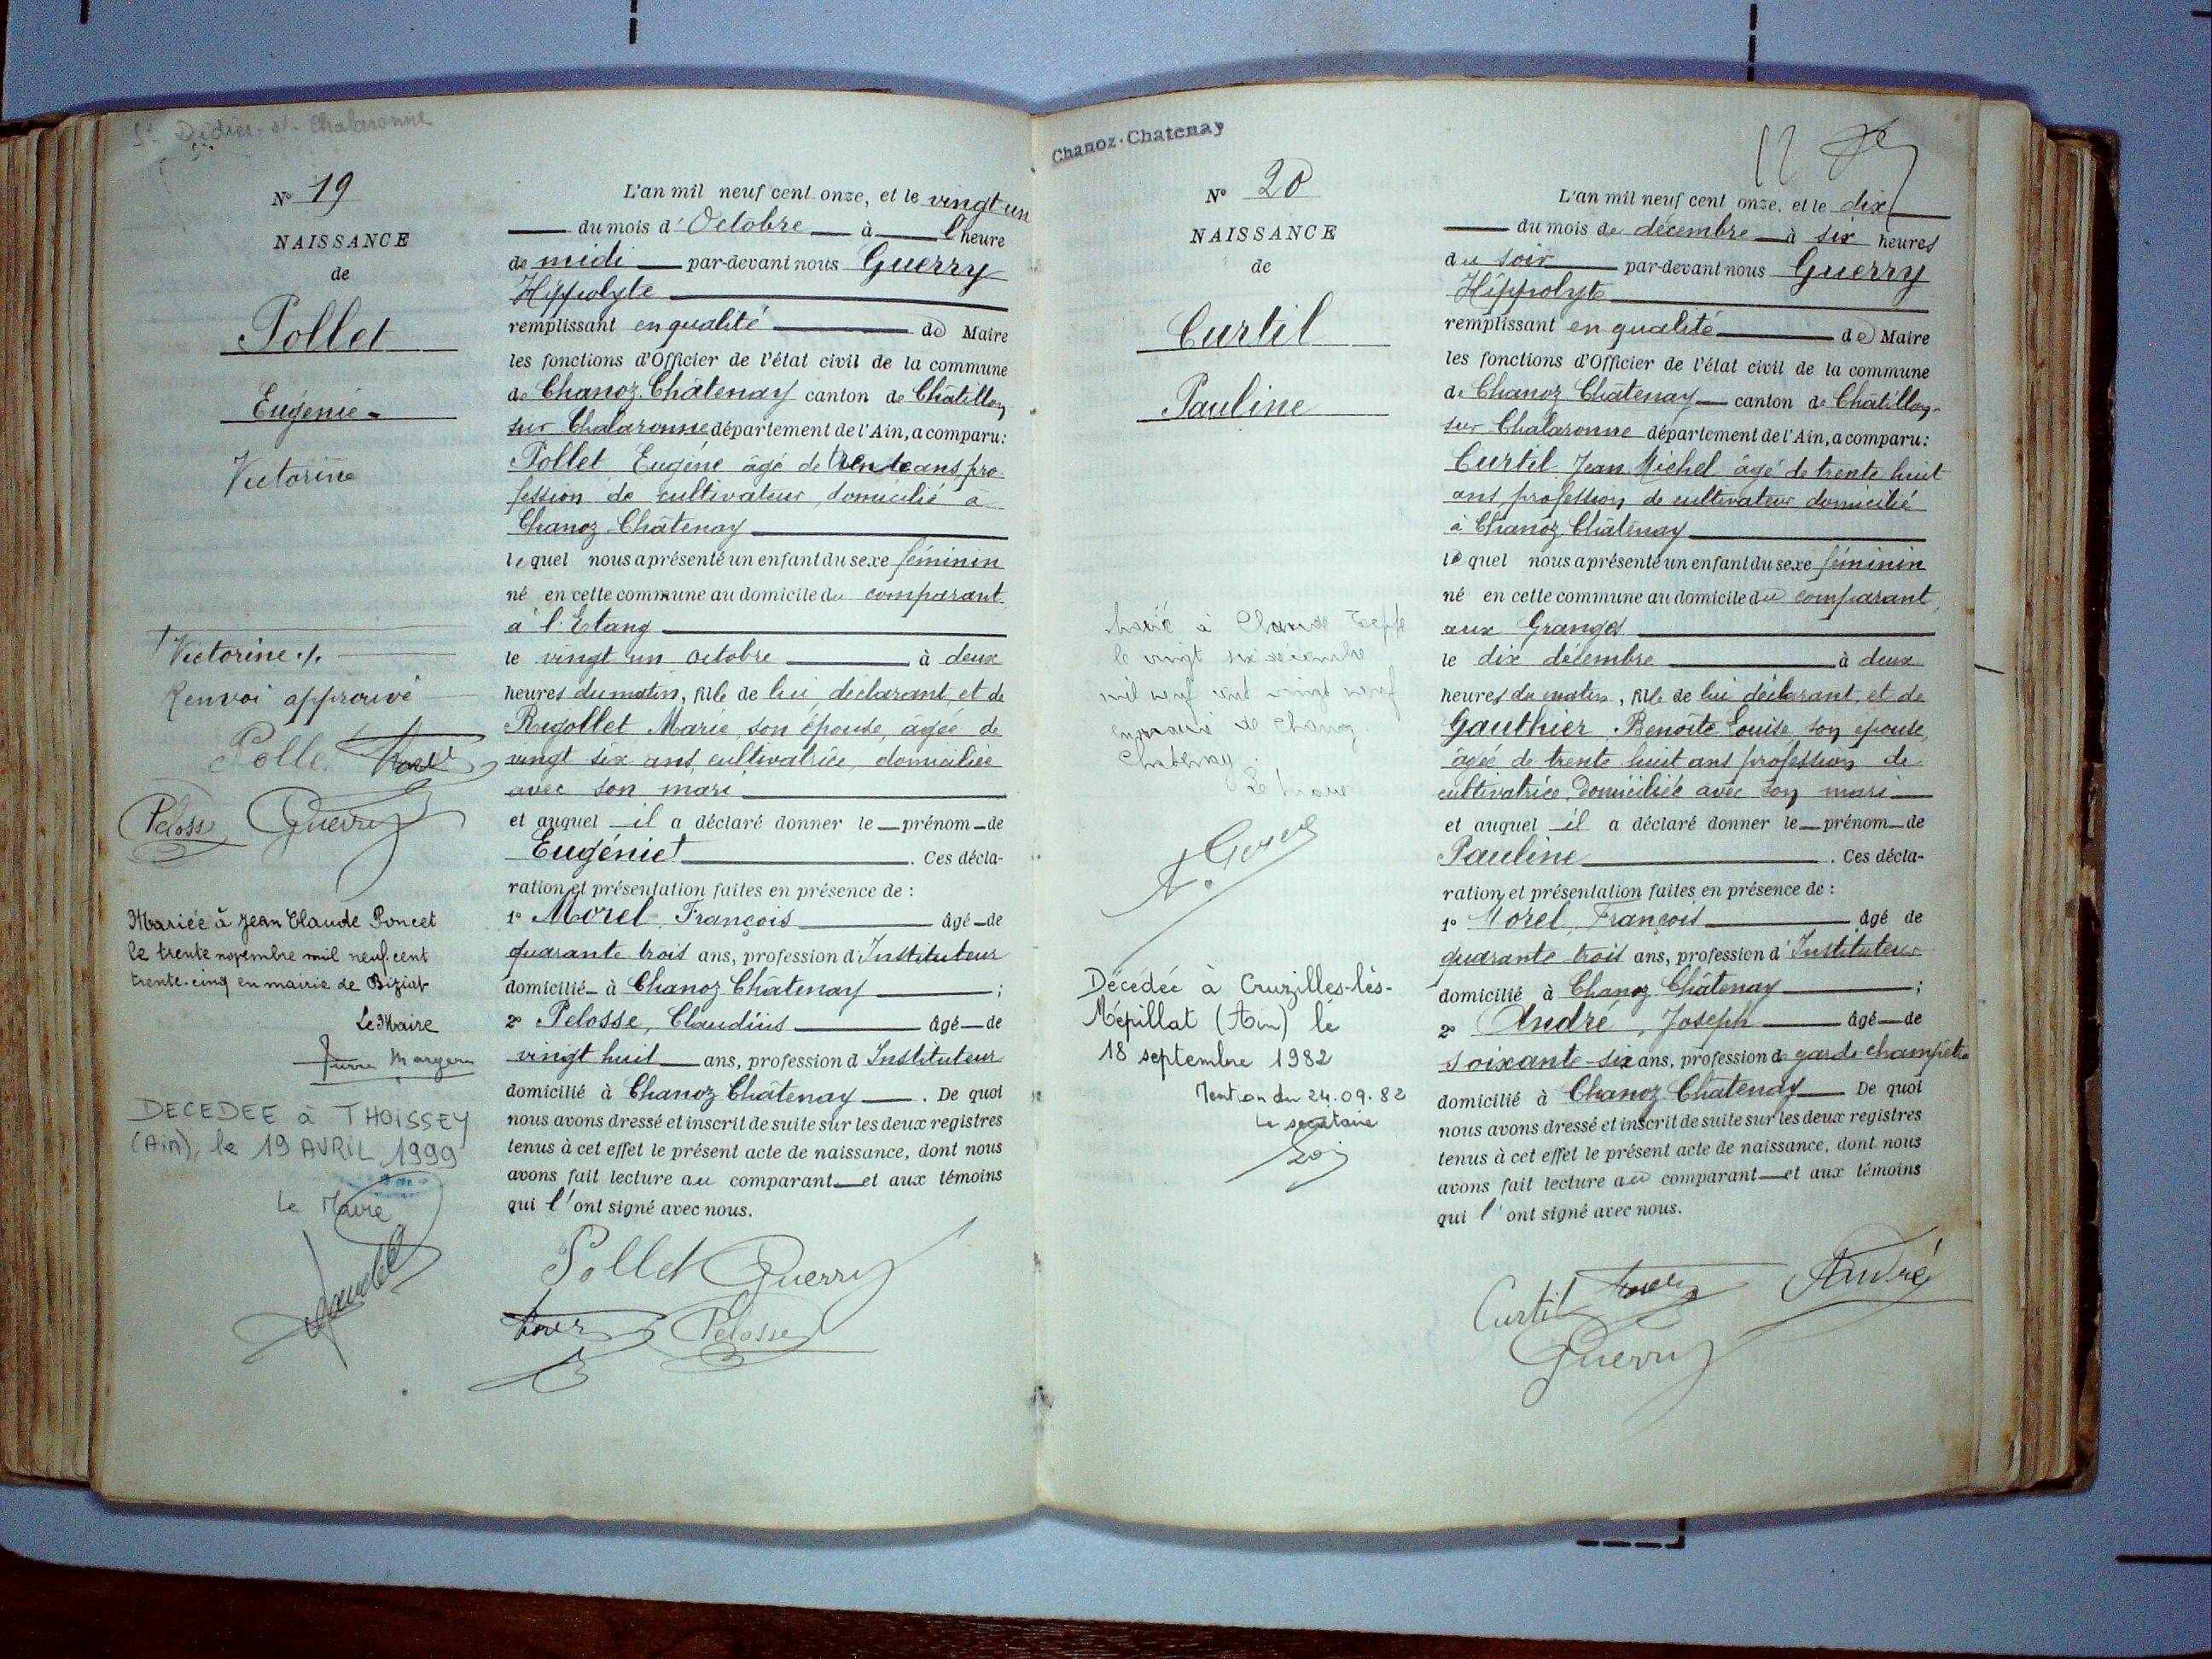 St Didier-s/-Chalaronne
N° 19
NAISSANCE
de
Pollet
Eugénie
Victorine
† Victorine ./.
Renvoi approuvé
Polle
Pelosse Guerry
Mariée à Jean Claude Poncet
le trente novembre mil neuf cent
trente-cinq en mairie de Biziat
Le Maire
DECEDEE à THOISSEY
(Ain), le 19 AVRIL 1999
Le Maire
L'an mil neuf cent onze, et le vingt un
du mois d'Octobre à l'heure
de midi par-devant nous Guerry
Hippolyte
remplissant en qualité de Maire
les fonctions d'Officier de l'état civil de la commune
de Chanoz-Châtenay canton de Châtillon
sur Chalaronne département de l'Ain, a comparu:
Pollet Eugène âgé de trente ans pro
fession de cultivateur, domicilié à
Chanoz-Châtenay
lequel nous a présenté un enfant du sexe féminin
né en cette commune au domicile du comparant
à l'Etang
le vingt un octobre à deux
heures du matin, fille de lui déclarant, et de
Rigollet Marie, son épouse, âgée de
vingt six ans, cultivatrice, domiciliée
avec son mari
et auquel il a déclaré donner le prénom de
Eugénie†. Ces décla-
ration et présentation faites en présence de :
1° Morel, François âgé de
quarante trois ans, profession d'Instituteur
domicilié à Chanoz Châtenay ;
2° Pelosse, Claudius âgé de
vingt huit ans, profession d'Instituteur
domicilié à Chanoz Châtenay. De quoi
nous avons dressé et inscrit de suite sur les deux registres
tenus à cet effet le présent acte de naissance, dont nous
avons fait lecture au comparant et aux témoins
qui l'ont signé avec nous.
Pollet Guerry
Morel Pelosse
Chanoz-Chatenay
N° 20
NAISSANCE
de
Curtil
Pauline
à Claude
le vingt six décembre
mil neuf cent vingt neuf
en mairie de Chanoz
Chatenay
Le Maire
Décédée à Cruzilles-lès-
Mépillat (Ain) le
18 septembre 1982
Mention du 24.09.82
Le secrétaire
12
L'an mil neuf cent onze, et le dix
du mois de décembre à six heures
du soir par-devant nous Guerry
Hippolyte
remplissant en qualité de Maire
les fonctions d'Officier de l'état civil de la commune
de Chanoz Châtenay canton de Châtillon-
sur Chalaronne département de l'Ain, a comparu:
Curtil Jean Michel âgé de trente huit
ans profession de cultivateur domicilié
à Chanoz Châtenay
lequel nous a présenté un enfant du sexe féminin
né en cette commune au domicile du comparant,
aux Granges
le dix décembre à deux
heures du matin, fille de lui déclarant, et de
Gauthier Benoîte Louise, son épouse,
âgée de trente huit ans profession de
cultivatrice, domiciliée avec son mari
et auquel il a déclaré donner le prénom de
Pauline. Ces décla-
ration et présentation faites en présence de :
1° Morel, François âgé de
quarante trois ans, profession d'Instituteur
domicilié à Chanoz Châtenay ;
2° André, Joseph âgé de
soixante-six ans, profession de garde champêtre
domicilié à Chanoz Châtenay De quoi
nous avons dressé et inscrit de suite sur les deux registres
tenus à cet effet le présent acte de naissance, dont nous
avons fait lecture au comparant et aux témoins
qui l'ont signé avec nous.
Curtil Morel André
Guerry